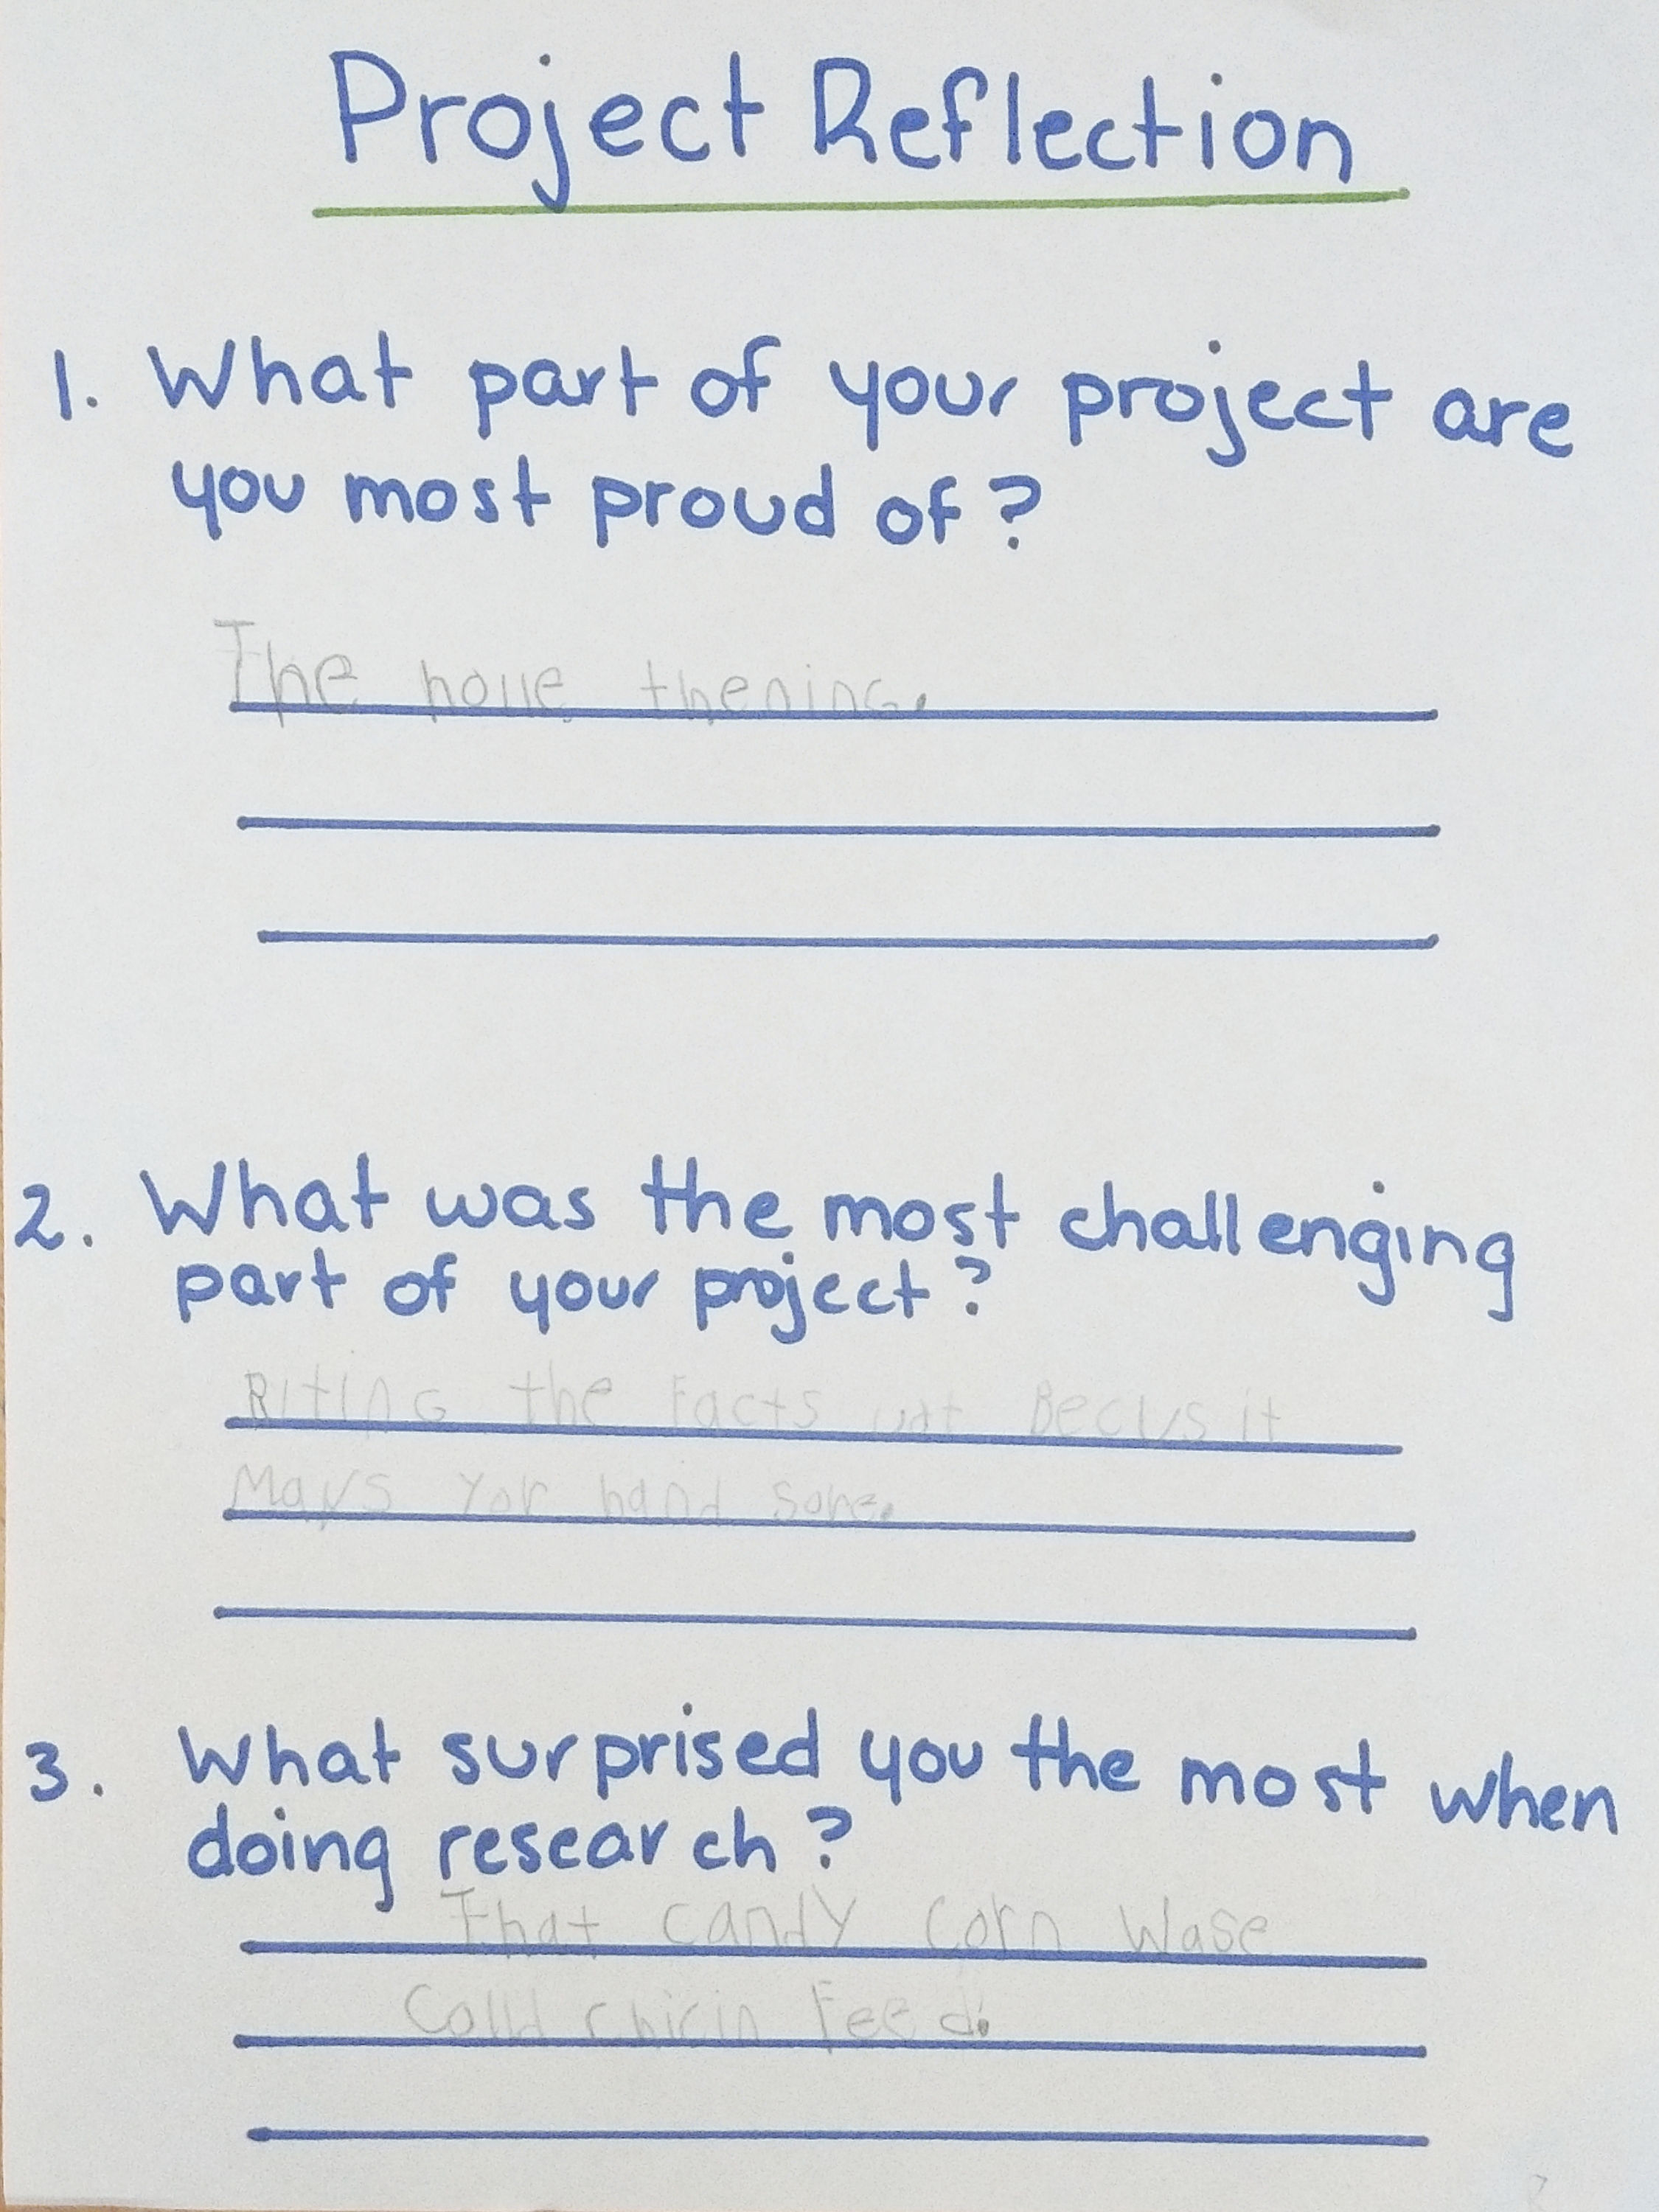 Project Reflection
1. What part of your project are
you most proud of?
The holle thening.
2. What was the most challenging
part of your project?
Riting the Facts out Becus it
Maks yor hand sore.
3. What surprised you the most when
doing research?
That candy corn wase
Calld chicin Feed.